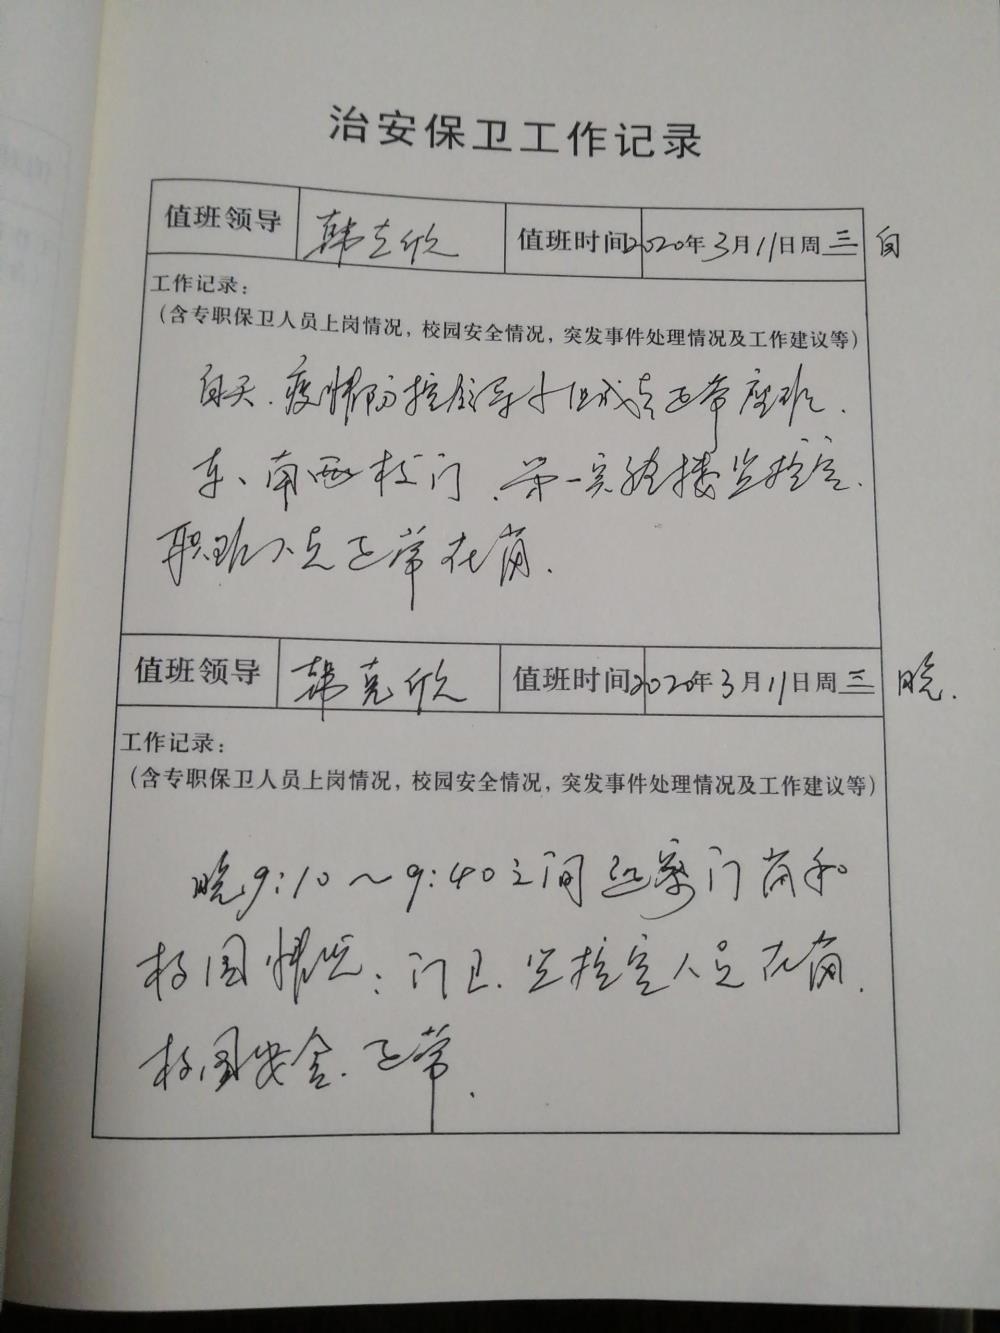 治安保卫工作记录
值班领导 韩克欣 值班时间 2020年3月11日周三 白
工作记录：
（含专职保卫人员上岗情况，校园安全情况，突发事件处理情况及工作建议等）
白天.疫情防控领导小组成员正常座班.
东、南西校门、第一实验楼监控室.
职班人员正常在岗.
值班领导 韩克欣 值班时间 2020年3月11日周三 晚.
工作记录：
（含专职保卫人员上岗情况，校园安全情况，突发事件处理情况及工作建议等）
晚9:10～9:40之间巡察门岗和
校园情况：门卫.监控室人员在岗.
校园安全.正常.